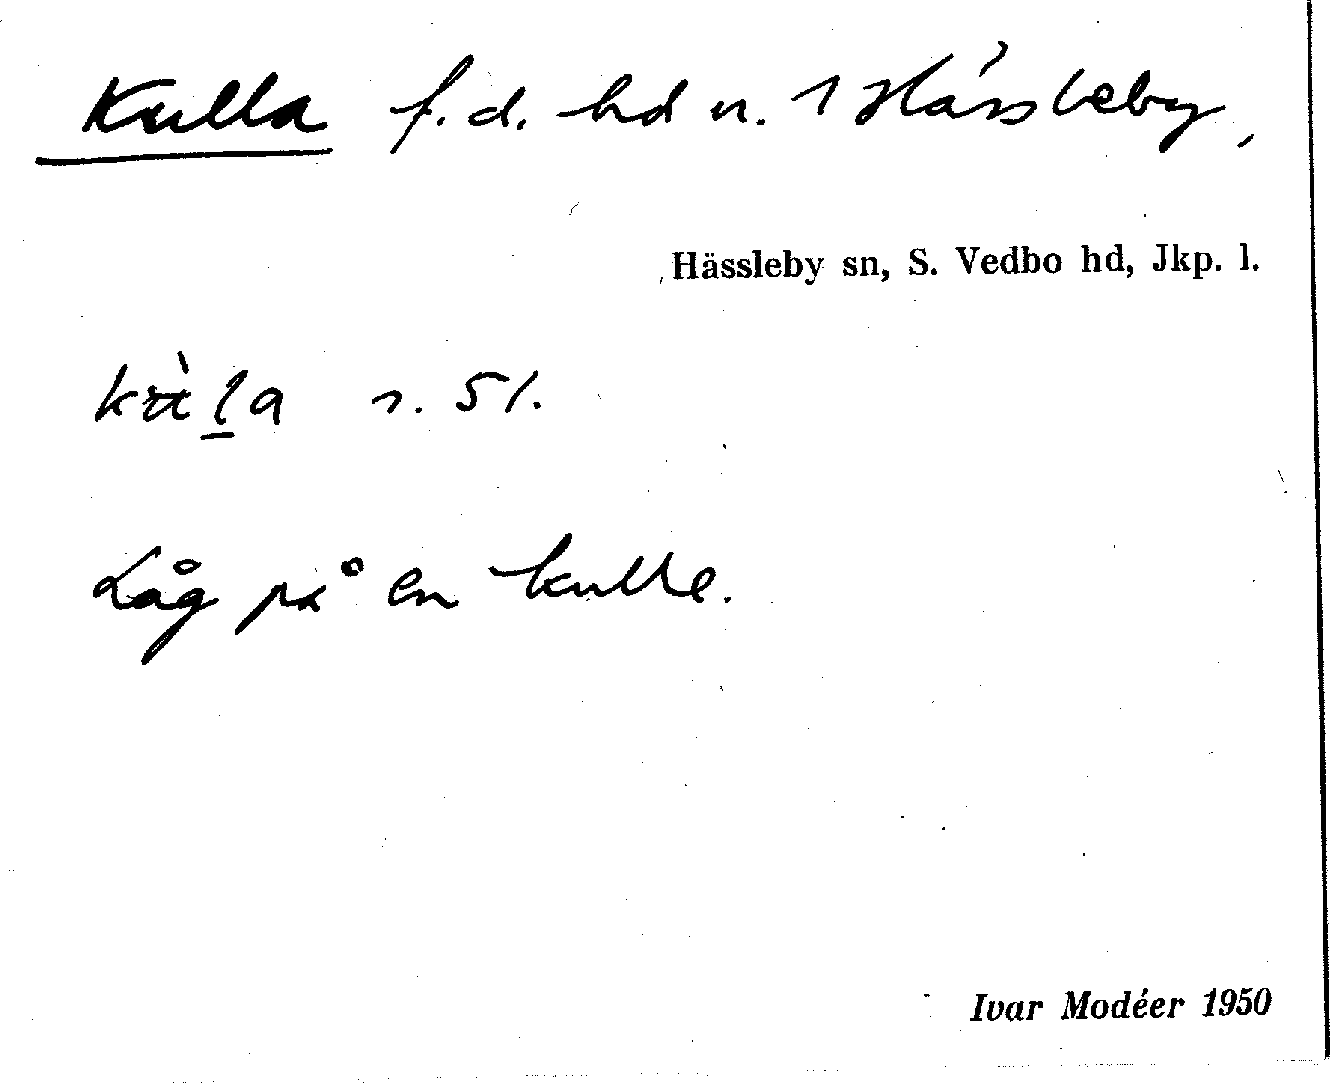 Kulla f.d. hd u. 1 Hässleby,
Hässleby sn, S. Vedbo hd, Jkp. l.
s. 51.
Låg på en kulle.
Ivar Modéer 1950